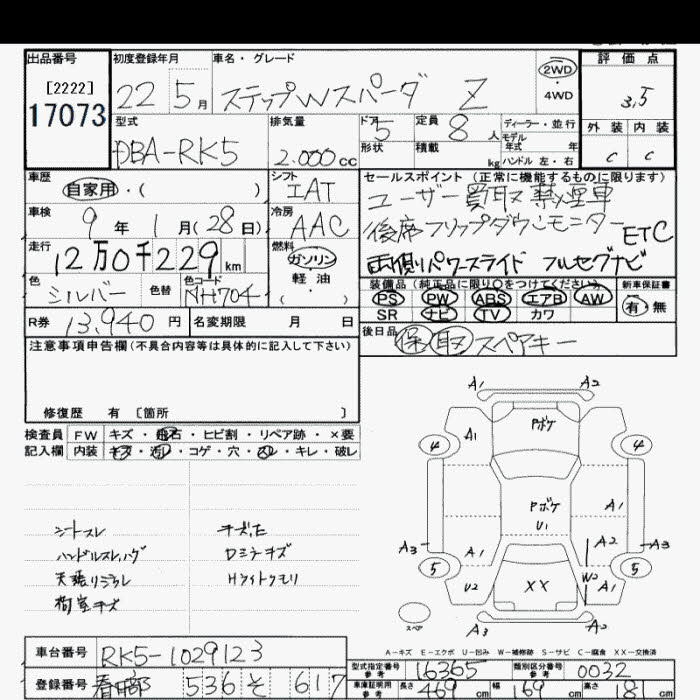 出品番号
[2222]
17073
初度登録年月
22 5月
車名・グレード
ステップWスパーダ Z
2WD
4WD
評価点
3.5
外装 内装
C C
型式
DBA-RK5
排気量
2.000cc
ドア 5
形状
定員 8人
積載 kg
ディーラー・並行
モデル
年式 年
ハンドル 左・右
車歴
自家用・( )
シフト
IAT
車検
9年 1月(28日)
冷房
AAC
セールスポイント(正常に機能するものに限ります)
ユーザー買取 禁煙車
後席フリップダウンモニター ETC
両側パワースライド フルセグナビ
走行
12万0千229km
燃料
ガソリン
軽油
( )
色
シルバー
色替
色コード
NH704
装備品(純正品に限り○をつけてください)
PS PW ABS エアB AW
SR ナビ TV カワ
新車保証書
有・無
R券 13,940円
名変期限 月 日
後日品 保 取 スペアキー
注意事項申告欄(不具合内容等は具体的に記入して下さい)
修復歴 有 〔箇所 〕
検査員 FW キズ・飛石・ヒビ割・リペア跡・×要
記入欄 内装 キズ・汚レ・コゲ・穴・スレ・キレ・破レ
シートスレ
ハンドルスレ,ハゲ
天張リヨゴレ
荷室キズ
Dミラーキズ
Hライトクモリ
A1 A2
Pボケ
4 A1 4
Pボケ
U1
A1
A3 A1 A2 A3
5 W2 5
U2 XX A1
スペア
A3 A2
A-キズ E-エクボ U-凹み W-補修跡 S-サビ C-腐食 XX-交換済
車台番号 RK5-1029123
登録番号 春日部 536 そ 617
型式指定番号
参考
16365
類別区分番号
参考
0032
車庫証明用
参考
長さ 469cm 幅 69cm 高さ 81cm